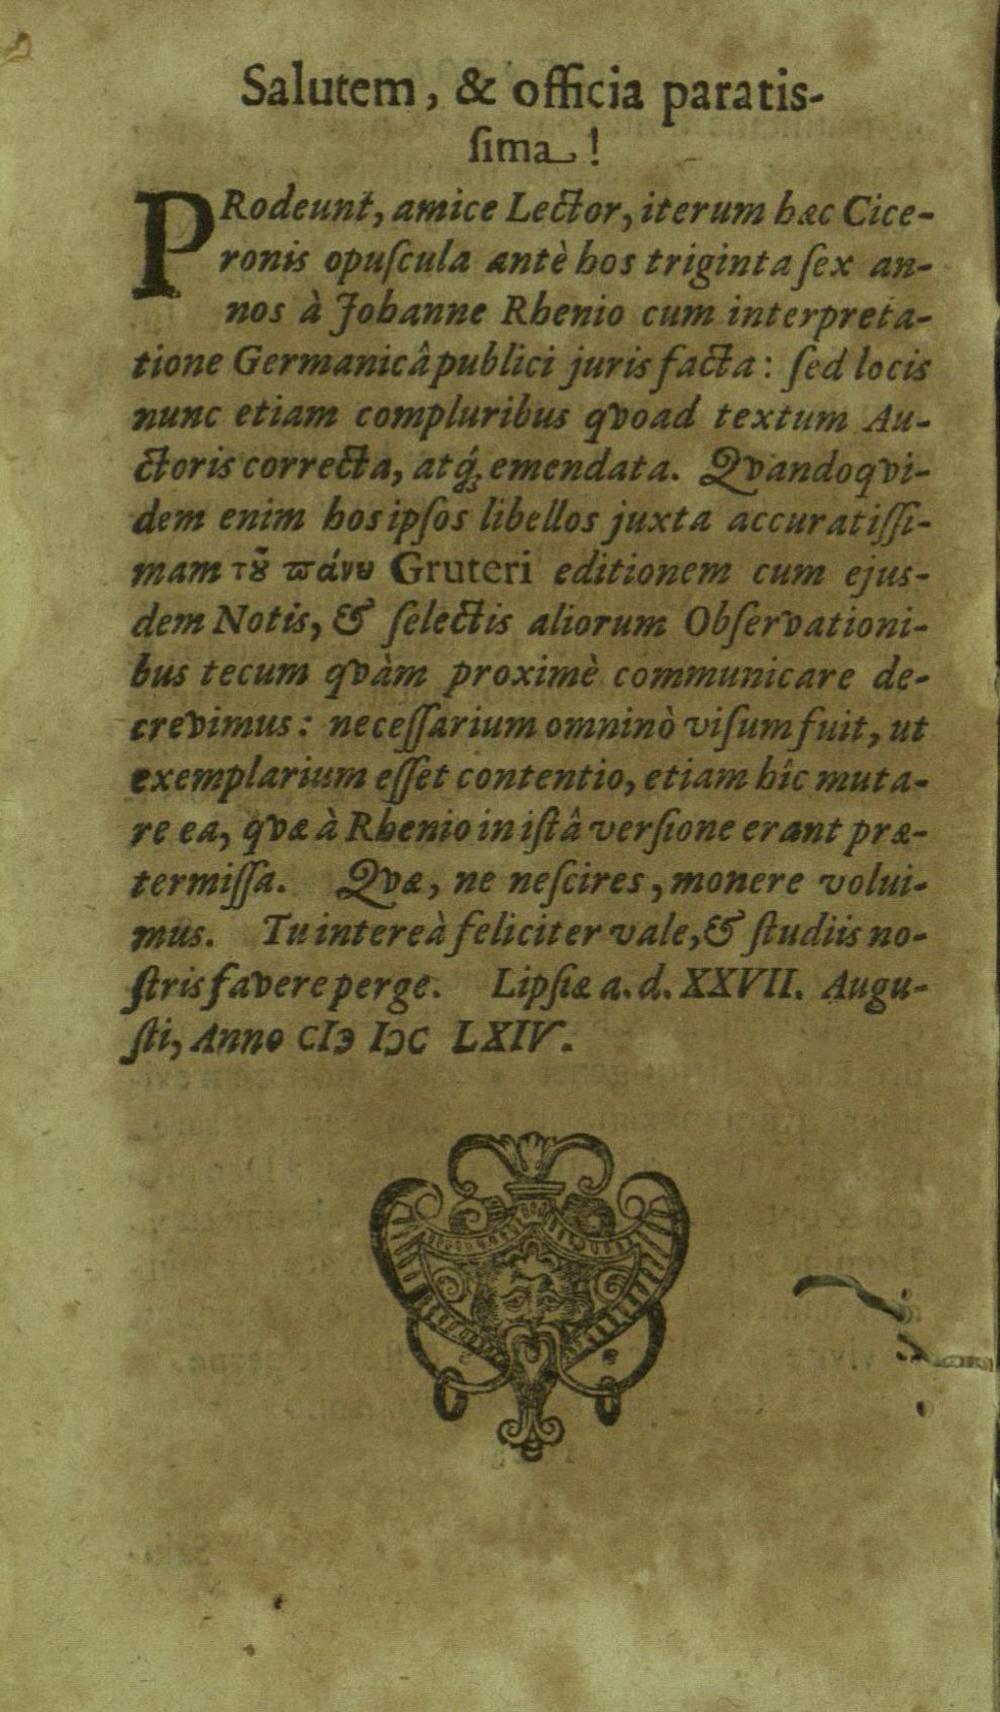 Salutem, & officia paratis-
ſima!
PRodeunt, amice Lector, iterum hæc Cice-
ronis opuſcula antè hos triginta ſex an-
nos à Johanne Rhenio cum interpreta-
tione Germanicâ publici juris facta: ſed locis
nunc etiam compluribus qvoad textum Au-
ctoris correcta, atq́; emendata. Qvandoqvi-
dem enim hos ipſos libellos juxta accuratiſſi-
mam τȣ͂ ϖάνυ Gruteri editionem cum ejus-
dem Notis, & ſelectis aliorum Obſervationi-
bus tecum qvàm proximè communicare de-
crevimus: neceſſarium omninò viſum fuit, ut
exemplarium eſſet contentio, etiam hîc muta-
re ea, qvæ à Rhenio in iſtâ verſione erant præ-
termiſſa. Qvæ, ne neſcires, monere volui-
mus. Tu intereà feliciter vale, & ſtudiis no-
ſtris favere perge. Lipſiæ a. d. XXVII. Augu-
ſti, Anno CIↄ IↄC LXIV.